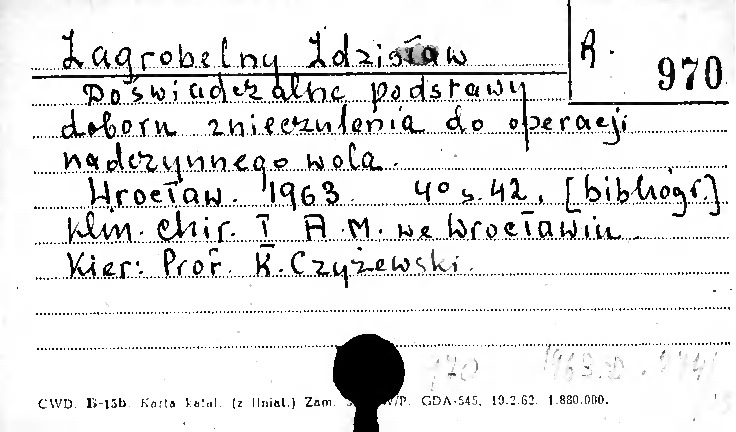 Zagrobelny Zdzisław
R. 970
Doświadczalne podstawy
doboru znieczulenia do operacji
nadczynnego wola.
Wrocław. 1963. 4° s. 42, [bibliogr.]
Klin. Chir. I A.M. we Wrocławiu
Kier: Prof. K. Czyżewski.
170 1963.D.
CWD. B-15b. Karta katal. (z liniat.) Zam. W/P. GDA-545. 19.2.62. 1.880.000.